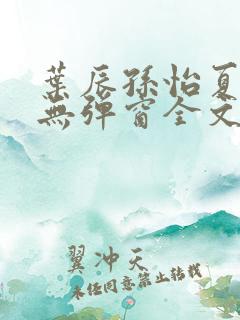 葉辰孫怡夏
無彈窗全文
翼冲天
未经同意禁止转载